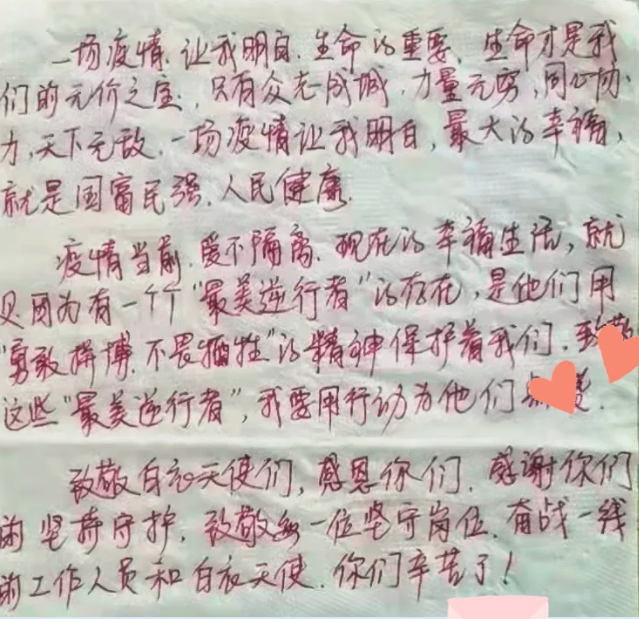 一场疫情.让我明白.生命的重要、生命才是我
们的无价之宝.只有众志成城.力量无穷,同心协
力,天下无敌.一场疫情让我明白,最大的幸福,
就是国富民强.人民健康.
疫情当前.爱不隔离.现在的幸福生活,就
因为有一个个“最美逆行者”的存在,是他们用
“勇敢拼搏.不畏牺牲”的精神保护着我们.致敬
这些“最美逆行者”,我要用行动为他们点赞.
致敬白衣天使们,感恩你们.感谢你们
的坚持守护.致敬每一位坚守岗位.奋战一线
的工作人员和白衣天使.你们辛苦了!